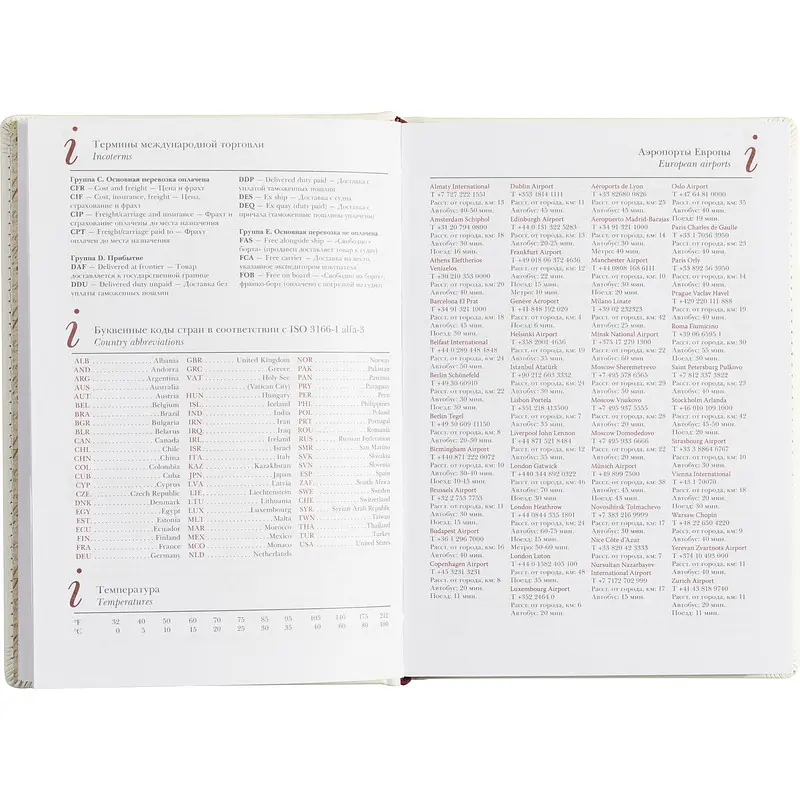 i Термины международной торговли
Incoterms
Группа C. Основная перевозка оплачена
CFR — Cost and freight — Цена и фрахт
CIF — Cost, insurance, freight — Цена,
страхование и фрахт
CIP — Freight/carriage and insurance — Фрахт и
страхование оплачены до места назначения
CPT — Freight/carriage paid to — Фрахт
оплачен до места назначения
Группа D. Прибытие
DAF — Delivered at frontier — Товар
доставляется к государственной границе
DDU — Delivered duty unpaid — Доставка без
уплаты таможенных пошлин
DDP — Delivered duty paid — Доставка с
уплатой таможенных пошлин
DES — Ex ship — Доставка с судна
DEQ — Ex quay (duty paid) — Доставка с
причала (таможенные пошлины уплачены)
Группа E. Основная перевозка не оплачена
FAS — Free alongside ship — «Свободно с
борта» (продавец доставляет товар к судну)
FCA — Free carrier — Доставка на место,
указанное экспедитором покупателя
FOB — Free on board — «Свободно на борту»,
франко-борт (оплачено с погрузкой на судно)
i Буквенные коды стран в соответствии с ISO 3166-1 alfa-3
Country abbreviations
ALB Albania
AND Andorra
ARG Argentina
AUS Australia
AUT Austria
BEL Belgium
BRA Brazil
BGR Bulgaria
BLR Belarus
CAN Canada
CHL Chile
CHN China
COL Colombia
CUB Cuba
CYP Cyprus
CZE Czech Republic
DNK Denmark
EGY Egypt
EST Estonia
ECU Ecuador
FIN Finland
FRA France
DEU Germany
GBR United Kingdom
GRC Greece
VAT Holy See
(Vatican City)
HUN Hungary
ISL Iceland
IND India
IRN Iran
IRQ Iraq
IRL Ireland
ISR Israel
ITA Italy
KAZ Kazakhstan
JPN Japan
LVA Latvia
LIE Liechtenstein
LTU Lithuania
LUX Luxembourg
MLT Malta
MAR Morocco
MEX Mexico
MCO Monaco
NLD Netherlands
NOR Norway
PAK Pakistan
PAN Panama
PRY Paraguay
PER Peru
PHL Philippines
POL Poland
PRT Portugal
ROU Romania
RUS Russian Federation
SMR San Marino
SVK Slovakia
SVN Slovenia
ZAF South Africa
SWE Sweden
CHE Switzerland
SYR Syrian Arab Republic
TWN Taiwan
THA Thailand
TUR Turkey
USA United States
i Температура
Temperatures
°F 32 40 50 60 70 75 85 95 105 140 175 212
°C 0 5 10 15 20 25 30 35 40 60 80 100
Аэропорты Европы i
European airports
Almaty International
T +7 727 222 1551
Расст. от города, км: 13
Автобус: 40-50 мин.
Amsterdam Schiphol
T +31 20 794 0800
Расст. от города, км: 18
Автобус: 30 мин.
Поезд: 16 мин.
Athens Eleftherios
Venizelos
T +30 210 353 0000
Расст. от города, км: 20
Barcelona El Prat
T +34 91 321 1000
Расст. от города, км: 18
Автобус: 45 мин.
Поезд: 30 мин.
Belfast International
T +44 0 289 448 4848
Расст. от города, км: 24
Автобус: 30-50 мин.
Berlin Schönefeld
T +49 30 60910
Расст. от города, км: 22
Автобус: 30 мин.
Поезд: 30 мин.
Berlin Tegel
T +49 30 609 11150
Расст. от города, км: 8
Автобус: 20-30 мин.
Birmingham Airport
T +44 0871 222 0072
Расст. от города, км: 10
Автобус: 30-40 мин.
Поезд: 10-15 мин.
Brussels Airport
T +32 2 753 7753
Расст. от города, км: 11
Автобус: 30 мин.
Поезд: 15 мин.
Budapest Airport
T +36 1 296 7000
Расст. от города, км: 16
Автобус: 40 мин.
Copenhagen Airport
T +45 3231 3231
Расст. от города, км: 8
Автобус: 20 мин.
Поезд: 11 мин.
Dublin Airport
T +353 1814 1111
Расст. от города, км: 11
Автобус: 45 мин.
Edinburgh Airport
T +44 0 131 322 5283
Расст. от города, км: 13
Автобус: 20-25 мин.
Frankfurt Airport
T +49 018 06 372 4636
Расст. от города, км: 12
Автобус: 22 мин.
Поезд: 15 мин.
Метро: 10 мин.
Genève Aéroport
T +41 848 192 020
Расст. от города, км: 4
Поезд: 6 мин.
Helsinki Airport
T +358 2001 4636
Расст. от города, км: 19
Автобус: 35 мин.
Istanbul Atatürk
T +90 212 663 3332
Расст. от города, км: 24
Автобус: 30 мин.
Lisbon Portela
T +351 218 413500
Расст. от города, км: 7
Автобус: 35 мин.
Liverpool John Lennon
T +44 871 521 8484
Расст. от города, км: 12
Автобус: 35 мин.
London Gatwick
T +440 344 892 0322
Расст. от города, км: 46
Автобус: 70 мин.
Поезд: 30 мин.
London Heathrow
T +44 0844 335 1801
Расст. от города, км: 24
Автобус: 60-75 мин.
Поезд: 15 мин.
Метро: 50-60 мин.
London Luton
T +44 0 1582 405 100
Расст. от города, км: 48
Поезд: 35 мин.
Luxembourg Airport
T +352 2464 0
Расст. от города, км: 6
Автобус: 20 мин.
Aéroports de Lyon
T +33 82680 0826
Расст. от города, км: 25
Автобус: 45 мин.
Aeropuerto Madrid-Barajas
T +34 91 321 1000
Расст. от города, км: 14
Автобус: 30 мин.
Метро: 40 мин.
Manchester Airport
T +44 0808 168 6411
Расст. от города, км: 16
Автобус: 30 мин.
Поезд: 20 мин.
Milano Linate
T +39 02 232323
Расст. от города, км: 42
Автобус: 25 мин.
Minsk National Airport
T +375 17 279 1300
Расст. от города, км: 42
Автобус: 60 мин.
Moscow Sheremetyevo
T +7 495 578 6565
Расст. от города, км: 29
Поезд: 35 мин.
Moscow Vnukovo
T +7 495 937 5555
Расст. от города, км: 28
Поезд: 40 мин.
Moscow Domodedovo
T +7 495 933 6666
Расст. от города, км: 22
Поезд: 45 мин.
Münich Airport
T +49 899 7500
Расст. от города, км: 38
Автобус: 45 мин.
Поезд: 43 мин.
Novosibirsk Tolmachevo
T +7 383 216 9999
Расст. от города, км: 17
Автобус: 30 мин.
Nice Côte d'Azur
T +33 820 42 3333
Расст. от города, км: 7
Автобус: 20 мин.
Nursultan Nazarbayev
International Airport
T +7 7172 702 999
Расст. от города, км: 17
Автобус: 15 мин.
Oslo Airport
T +47 64 81 0000
Расст. от города, км: 35
Автобус: 40 мин.
Поезд: 19 мин.
Paris Charles de Gaulle
T +33 1 7036 3950
Расст. от города, км: 23
Автобус: 40 мин.
Paris Orly
T +33 892 56 3950
Расст. от города, км: 14
Автобус: 40 мин.
Prague Vaclav Havel
T +420 220 111 888
Расст. от города, км: 19
Автобус: 40 мин.
Roma Fiumicino
T +39 06 6595 1
Расст. от города, км: 30
Автобус: 55 мин.
Поезд: 30 мин.
Saint Petersburg Pulkovo
T +7 812 337 3822
Расст. от города, км: 23
Автобус: 30 мин.
Stockholm Arlanda
T +46 010 109 1000
Расст. от города, км: 42
Автобус: 45-50 мин.
Поезд: 20 мин.
Strasbourg Airport
T +33 3 8864 6767
Расст. от города, км: 10
Автобус: 30 мин.
Vienna International
T +43 1 70070
Расст. от города, км: 18
Автобус: 20 мин.
Поезд: 20 мин.
Warsaw Chopin
T +48 22 650 4220
Расст. от города, км: 9
Автобус: 30 мин.
Yerevan Zvartnots Airport
T +374 10 493 000
Расст. от города, км: 11
Zurich Airport
T +41 43 818 9740
Расст. от города, км: 11
Автобус: 20 мин.
Поезд: 11 мин.